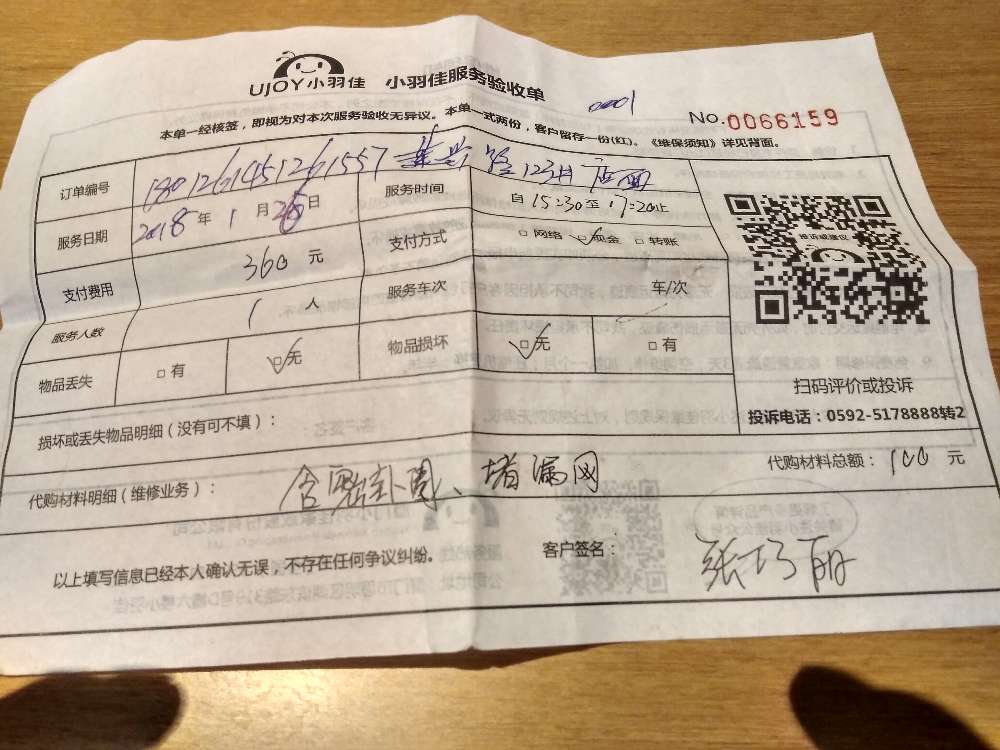 UJOY小羽佳 小羽佳服务验收单
0001
No.0066159
本单一经核签，即视为对本次服务验收无异议。本单一式两份，客户留存一份(红)。《维保须知》详见背面。
订单编号 1801261451261557
服务日期 2018年1月26日 服务时间 自15:30至17:20止
支付费用 360元 支付方式 □网络 □现金 □转账
服务人数 1人 服务车次 车/次
物品丢失 □有 □无 物品损坏 □无 □有
投诉或建议
扫码评价或投诉
投诉电话：0592-5178888转2
损坏或丢失物品明细（没有可不填）：
代购材料明细（维修业务）： 堵漏网 代购材料总额：100元
以上填写信息已经本人确认无误，不存在任何争议纠纷。 客户签名： 张巧丽